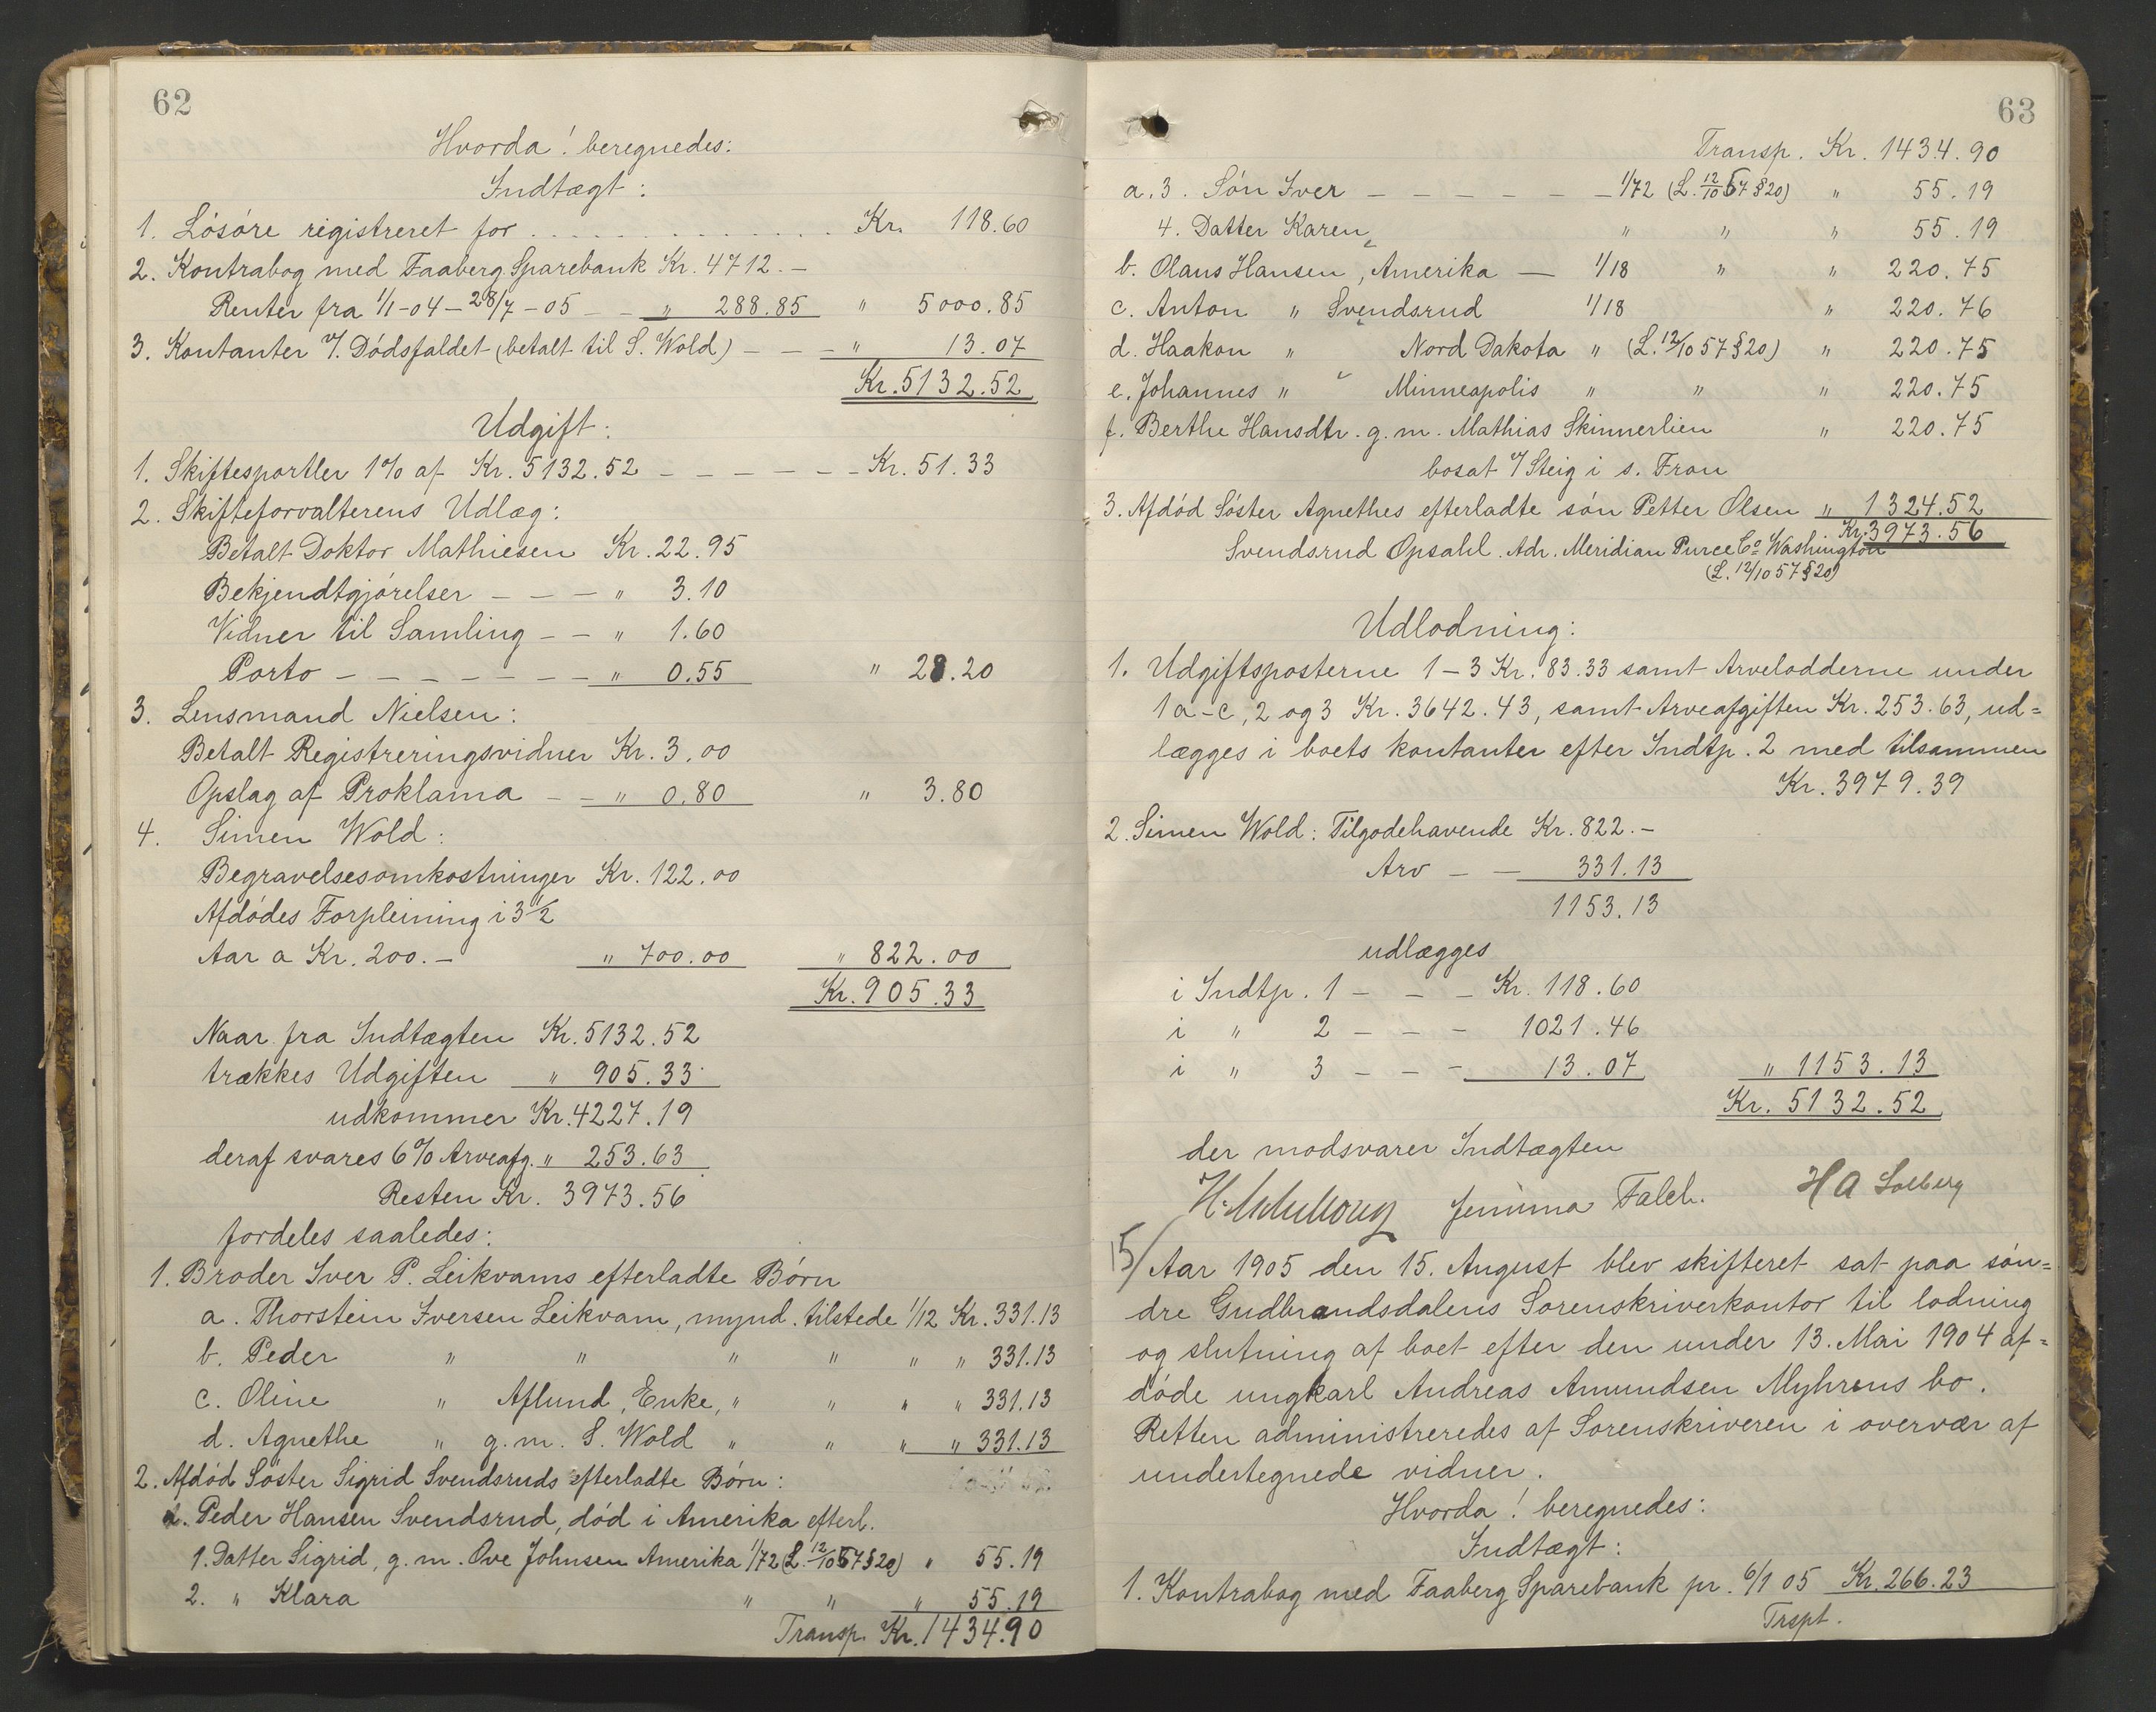 62
Hvorda! beregnedes:
Indtægt:
1. Løsøre registreret for . . . . . . . . . . . . Kr. 118.60
2. Kontrabog med Faaberg Sparebank Kr. 4712.—
Renter fra 1/1-04 — 28/7-05 — — " 288.85 " 5000.85
3. Kontanter v/. Dødsfaldet (betalt til S. Wold) — — — " 13.07
Kr. 5132.52
Udgift:
1. Skiftesportler 1% af Kr. 5132.52 — — — — — Kr. 51.33
2. Skifteforvalterens Udlæg:
Betalt Doktor Mathiesen Kr. 22.95
Bekjendtgjørelser — — — " 3.10
Vidner til Samling — — " 1.60
Porto — — — — — — — " 0.55 " 28.20
3. Lensmand Nielsen:
Betalt Registreringsvidner Kr. 3.00
Opslag af Proklama — — " 0.80 " 3.80
4. Simen Wold:
Begravelsesomkostninger Kr. 122.00
Afdødes Forpleining i 3 1/2
Aar a Kr. 200.— " 700.00 " 822.00
Kr. 905.33
Naar fra Indtægten Kr. 5132.52
trækkes Udgiften " 905.33
udkommer Kr. 4227.19
deraf svares 6% Arveafg. " 253.63
Resten Kr. 3973.56
fordeles saaledes:
1. Broder Iver P. Leikvams efterladte Børn
a. Thorstein Iversen Leikvam, mynd. tilstede 1/12 Kr. 331.13
b. Peder " " " " " " 331.13
c. Oline " Aflund, Enke, " " " " 331.13
d. Agnethe " g.m. S. Wold " " " " 331.13
2. Afdød Søster Sigrid Svendsruds efterladte Børn:
a. Peder Hansen Svendsrud, død i Amerika efterl.
1. Datter Sigrid, g.m. Ove Johnsen Amerika 1/72 (L. 12/10 57 § 20) " 55.19
2. " Klara " " " 55.19
Transp. Kr. 1434.90
63
Transp. Kr. 1434.90
a. 3. Søn Iver — — — — — — 1/72 (L. 12/10 57 § 20) " 55.19
4. Datter Karen " " " 55.19
b. Olaus Hansen, Amerika — 1/18 " " 220.75
c. Anton " Svendsrud 1/18 " 220.76
d. Haakon " Nord Dakota " (L. 12/10 57 § 20) " 220.75
e. Johannes " Minneapolis " " " 220.75
f. Berthe Hansdtr. g.m. Mathias Skinnerlien " 220.75
bosat v/ Steig i s. Fron
3. Afdød Søster Agnethes efterladte søn Petter Olsen " 1324.52
Kr. 3973.56
Svendsrud Opsahl. Adr. Meridian Purce Co. Washington
(L. 12/10 57 § 20)
Udlodning:
1. Udgiftsposterne 1-3 Kr. 83.33 samt Arvelodderne under
1 a-c, 2 og 3 Kr. 3642.43, samt Arveafgiften Kr. 253.63, ud=
lægges i boets kontanter efter Indtp. 2 med tilsammen
Kr. 3979.39
2. Simen Wold: Tilgodehavende Kr. 822.—
Arv — — 331.13
1153.13
udlægges
i Indtp. 1 — — — Kr. 118.60
i " 2 — — — 1021.46
i " 3 — — — 13.07 " 1153.13
Kr. 5132.52
der modsvarer Indtægten
Jemima Falch. H A Solberg
15/ Aar 1905 den 15. August blev skifteret sat paa søn=
dre Gudbrandsdalens Sorenskriverkontor til lodning
og slutning af boet efter den under 13. Mai 1904 af=
døde ungkarl Andreas Amundsen Myhrens bo.
Retten administreredes af Sorenskriveren i overvær af
undertegnede vidner.
Hvorda! beregnedes:
Indtægt:
1. Kontrabog med Faaberg Sparebank pr. 6/1 05 Kr. 266.23
Trspt.